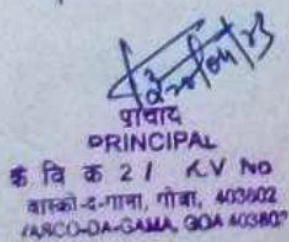 20/04/23
प्राचार्य
PRINCIPAL
के वि क्र 2 / KV No
वास्को-द-गामा, गोवा, 403802
VASCO-DA-GAMA, GOA 403802